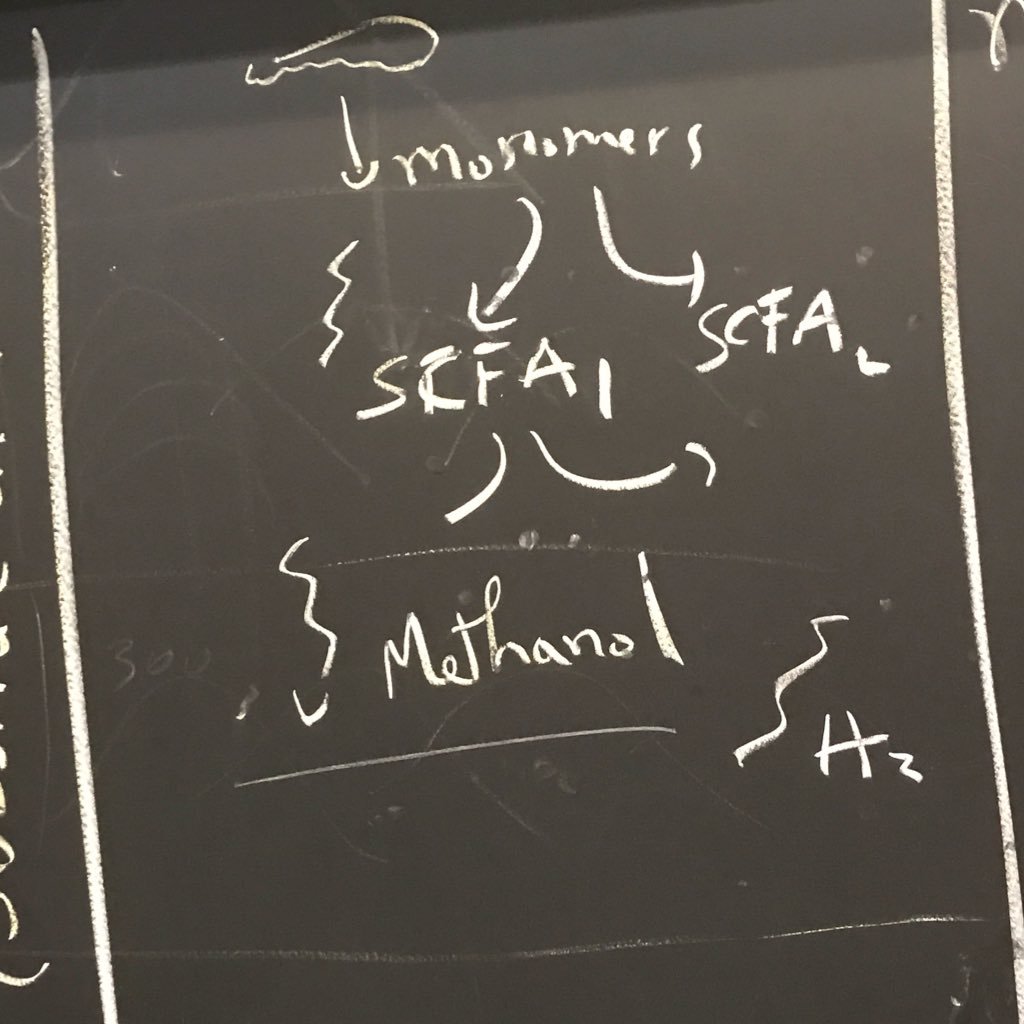 monomers
SCFA1
SCFA2
Methanol
H2
300